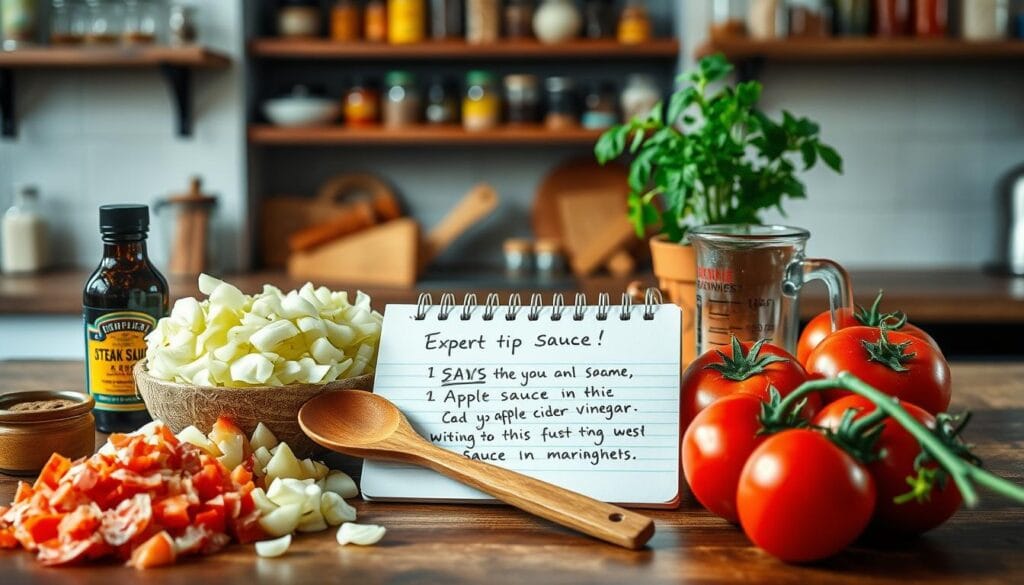 STEAK
Expert tip sauce!
1 SAVS the you anl soame,
1 Apple sauce in thie
Cad yo apple cider vinegar.
witing to this fust ting west
Sauce in maringhets.